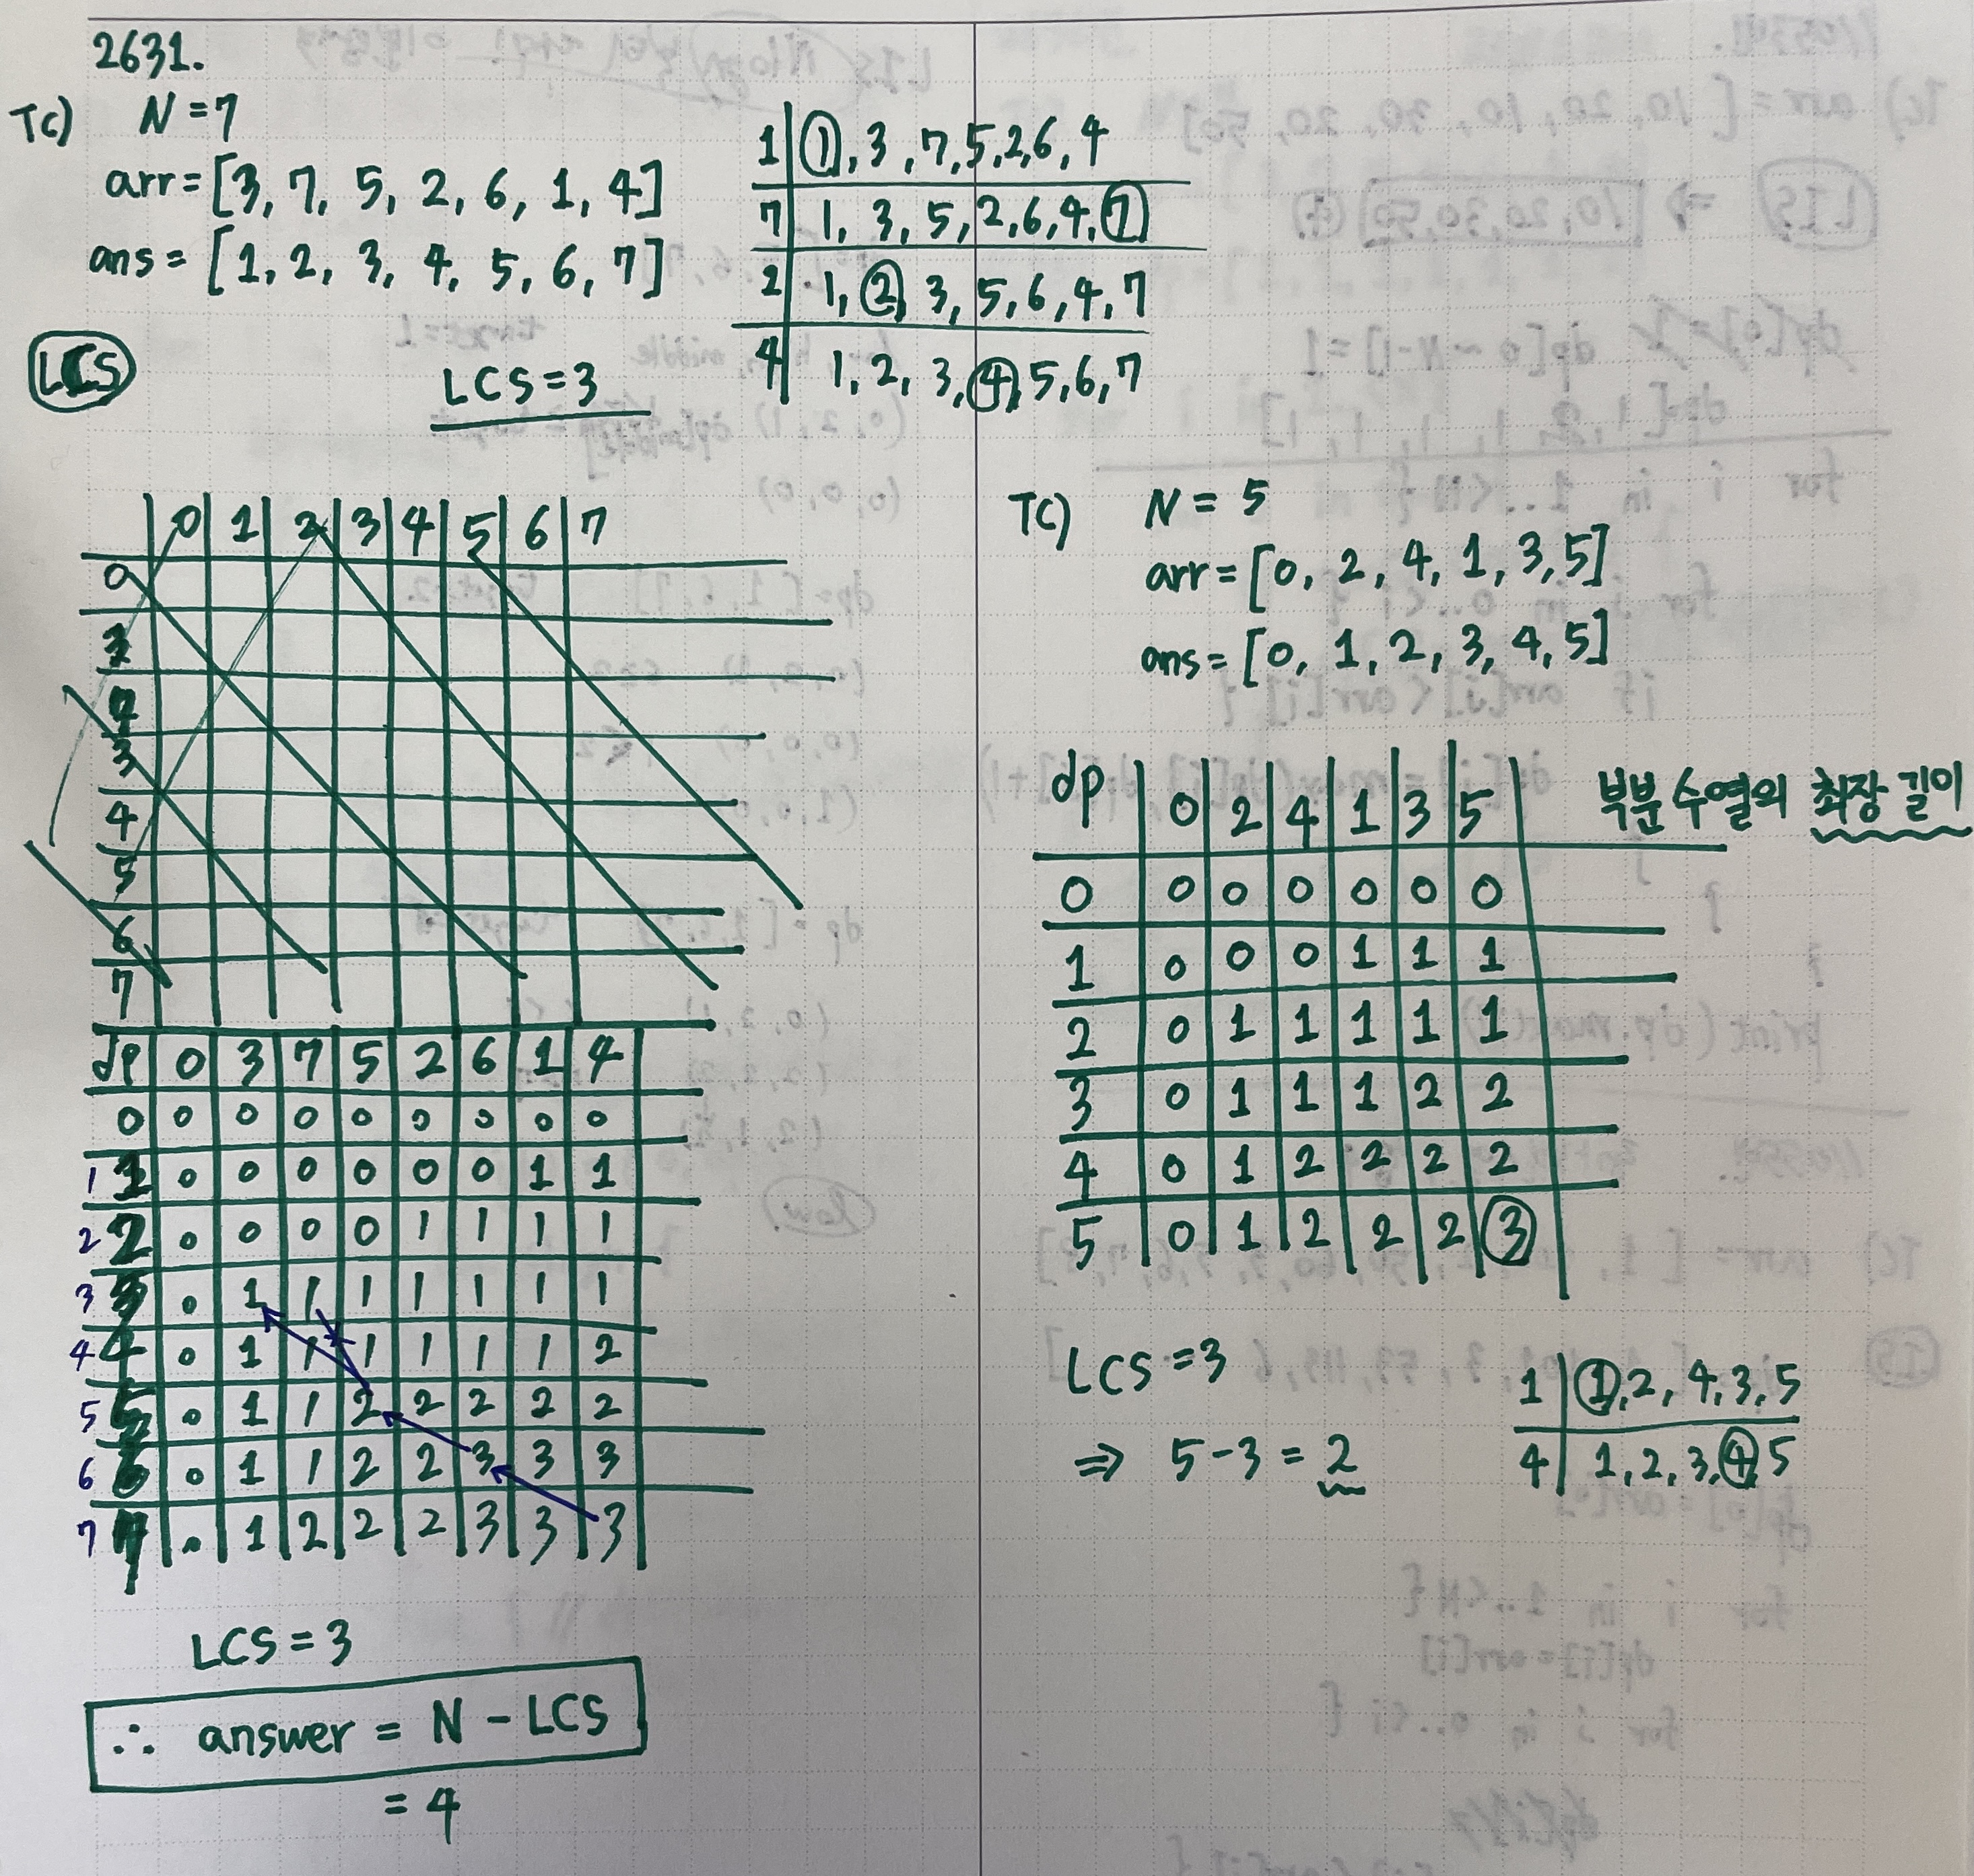 2631.
TC) N = 7
arr = [3, 7, 5, 2, 6, 1, 4]
ans = [1, 2, 3, 4, 5, 6, 7]
LCS
LCS = 3
1 | 1, 3, 7, 5, 2, 6, 4
7 | 1, 3, 5, 2, 6, 4, 7
2 | 1, 2, 3, 5, 6, 4, 7
4 | 1, 2, 3, 4, 5, 6, 7
0 1 2 3 4 5 6 7
0
1
2
3
4
5
6
7
dp 0 3 7 5 2 6 1 4
0 0 0 0 0 0 0 0 0
1 1 0 0 0 0 0 0 1 1
2 2 0 0 0 0 1 1 1 1
3 3 0 1 1 1 1 1 1 1
4 4 0 1 1 1 1 1 1 2
5 5 0 1 1 2 2 2 2 2
6 6 0 1 1 2 2 3 3 3
7 7 0 1 2 2 2 3 3 3
LCS = 3
∴ answer = N - LCS
= 4
TC) N = 5
arr = [0, 2, 4, 1, 3, 5]
ans = [0, 1, 2, 3, 4, 5]
dp 0 2 4 1 3 5
0 0 0 0 0 0 0
1 0 0 0 1 1 1
2 0 1 1 1 1 1
3 0 1 1 1 2 2
4 0 1 2 2 2 2
5 0 1 2 2 2 3
부분 수열의 최장 길이
LCS = 3
⇒ 5 - 3 = 2
1 | 1, 2, 4, 3, 5
4 | 1, 2, 3, 4, 5